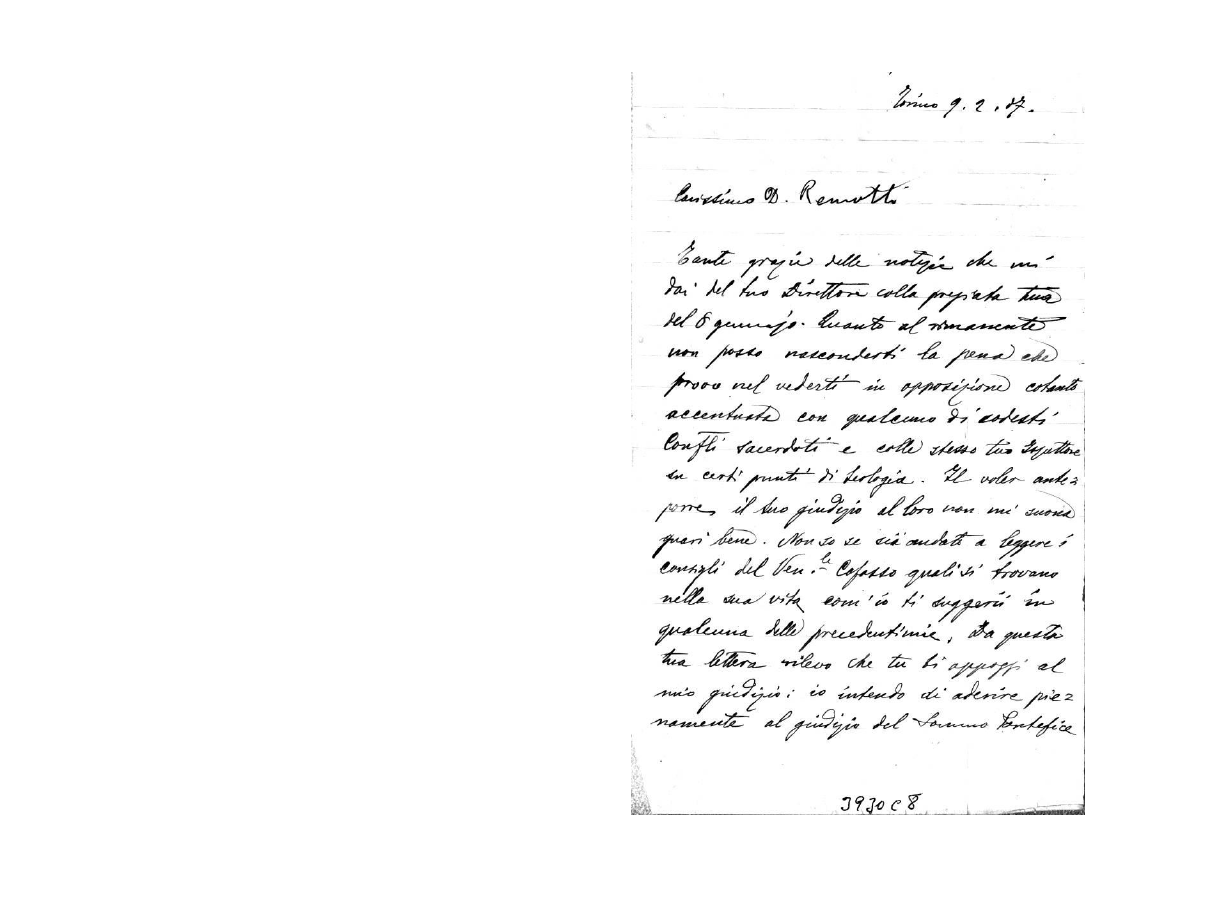 Torino 9. 2. 07.
Carissimo D. Remotti
Tante grazie delle notizie che mi
dai del tuo Direttore colla pregiata tua
del 8 gennajo. Quanto al rimanente
non posso nasconderti la pena che
provo nel vederti in opposizione cotanto
accentuata con qualcuno di codesti
Confli sacerdoti e collo stesso tuo Ispettore
su certi punti di teologia. Il voler ante=
porre il tuo giudizio al loro non mi suona
guari bene. Non so se sia andato a leggere i
consigli del Ven.le Cafasso quali si trovano
nella sua vita com'io ti suggerii in
qualcuna delle precedenti mie. Da questa
tua lettera rilevo che tu ti appoggi al
mio giudizio: io intendo di aderire pie=
namente al giudizio del Sommo Pontefice
3930 C 8